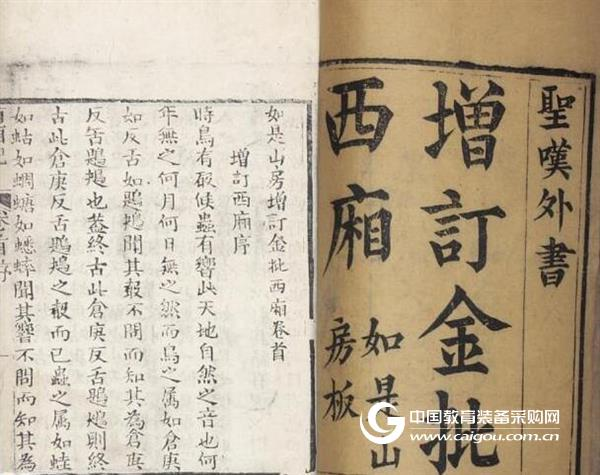 聖嘆外書
增訂金批
西廂
如是山
房板
如是山房增訂金批西廂卷首
增訂西廂序
時鳥有殸候蟲有響此天地自然之音也何
年無之何月何日無之然而鳥之属如倉庚
如反舌如鶗鴂聞其殸不問而知其為倉庚
反舌鶗鴂也蓋終古此倉庚反舌鶗鴂則終
古此倉庚反舌鶗鴂之殸而已蟲之属如蛙
如蛄如蜩螗如蟋蟀聞其響不問而知其為
中国教育装备采购网
www.caigou.com.cn